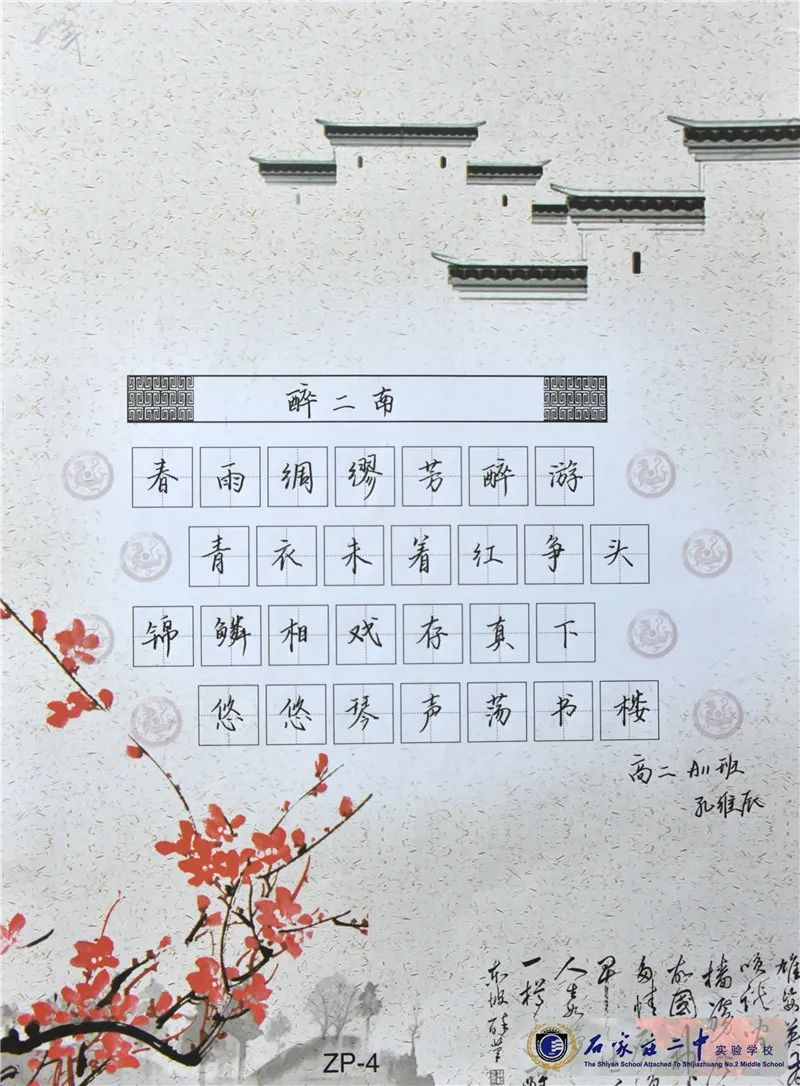 醉二南
春雨绸缪芳醉游
青衣未着红争头
锦鳞相戏存真下
悠悠琴声荡书楼
高二 A11班
孔维辰
一樽
东坡
ZP-4
石家庄二中 实验学校
The Shiyan School Attached To Shijiazhuang No.2 Middle School